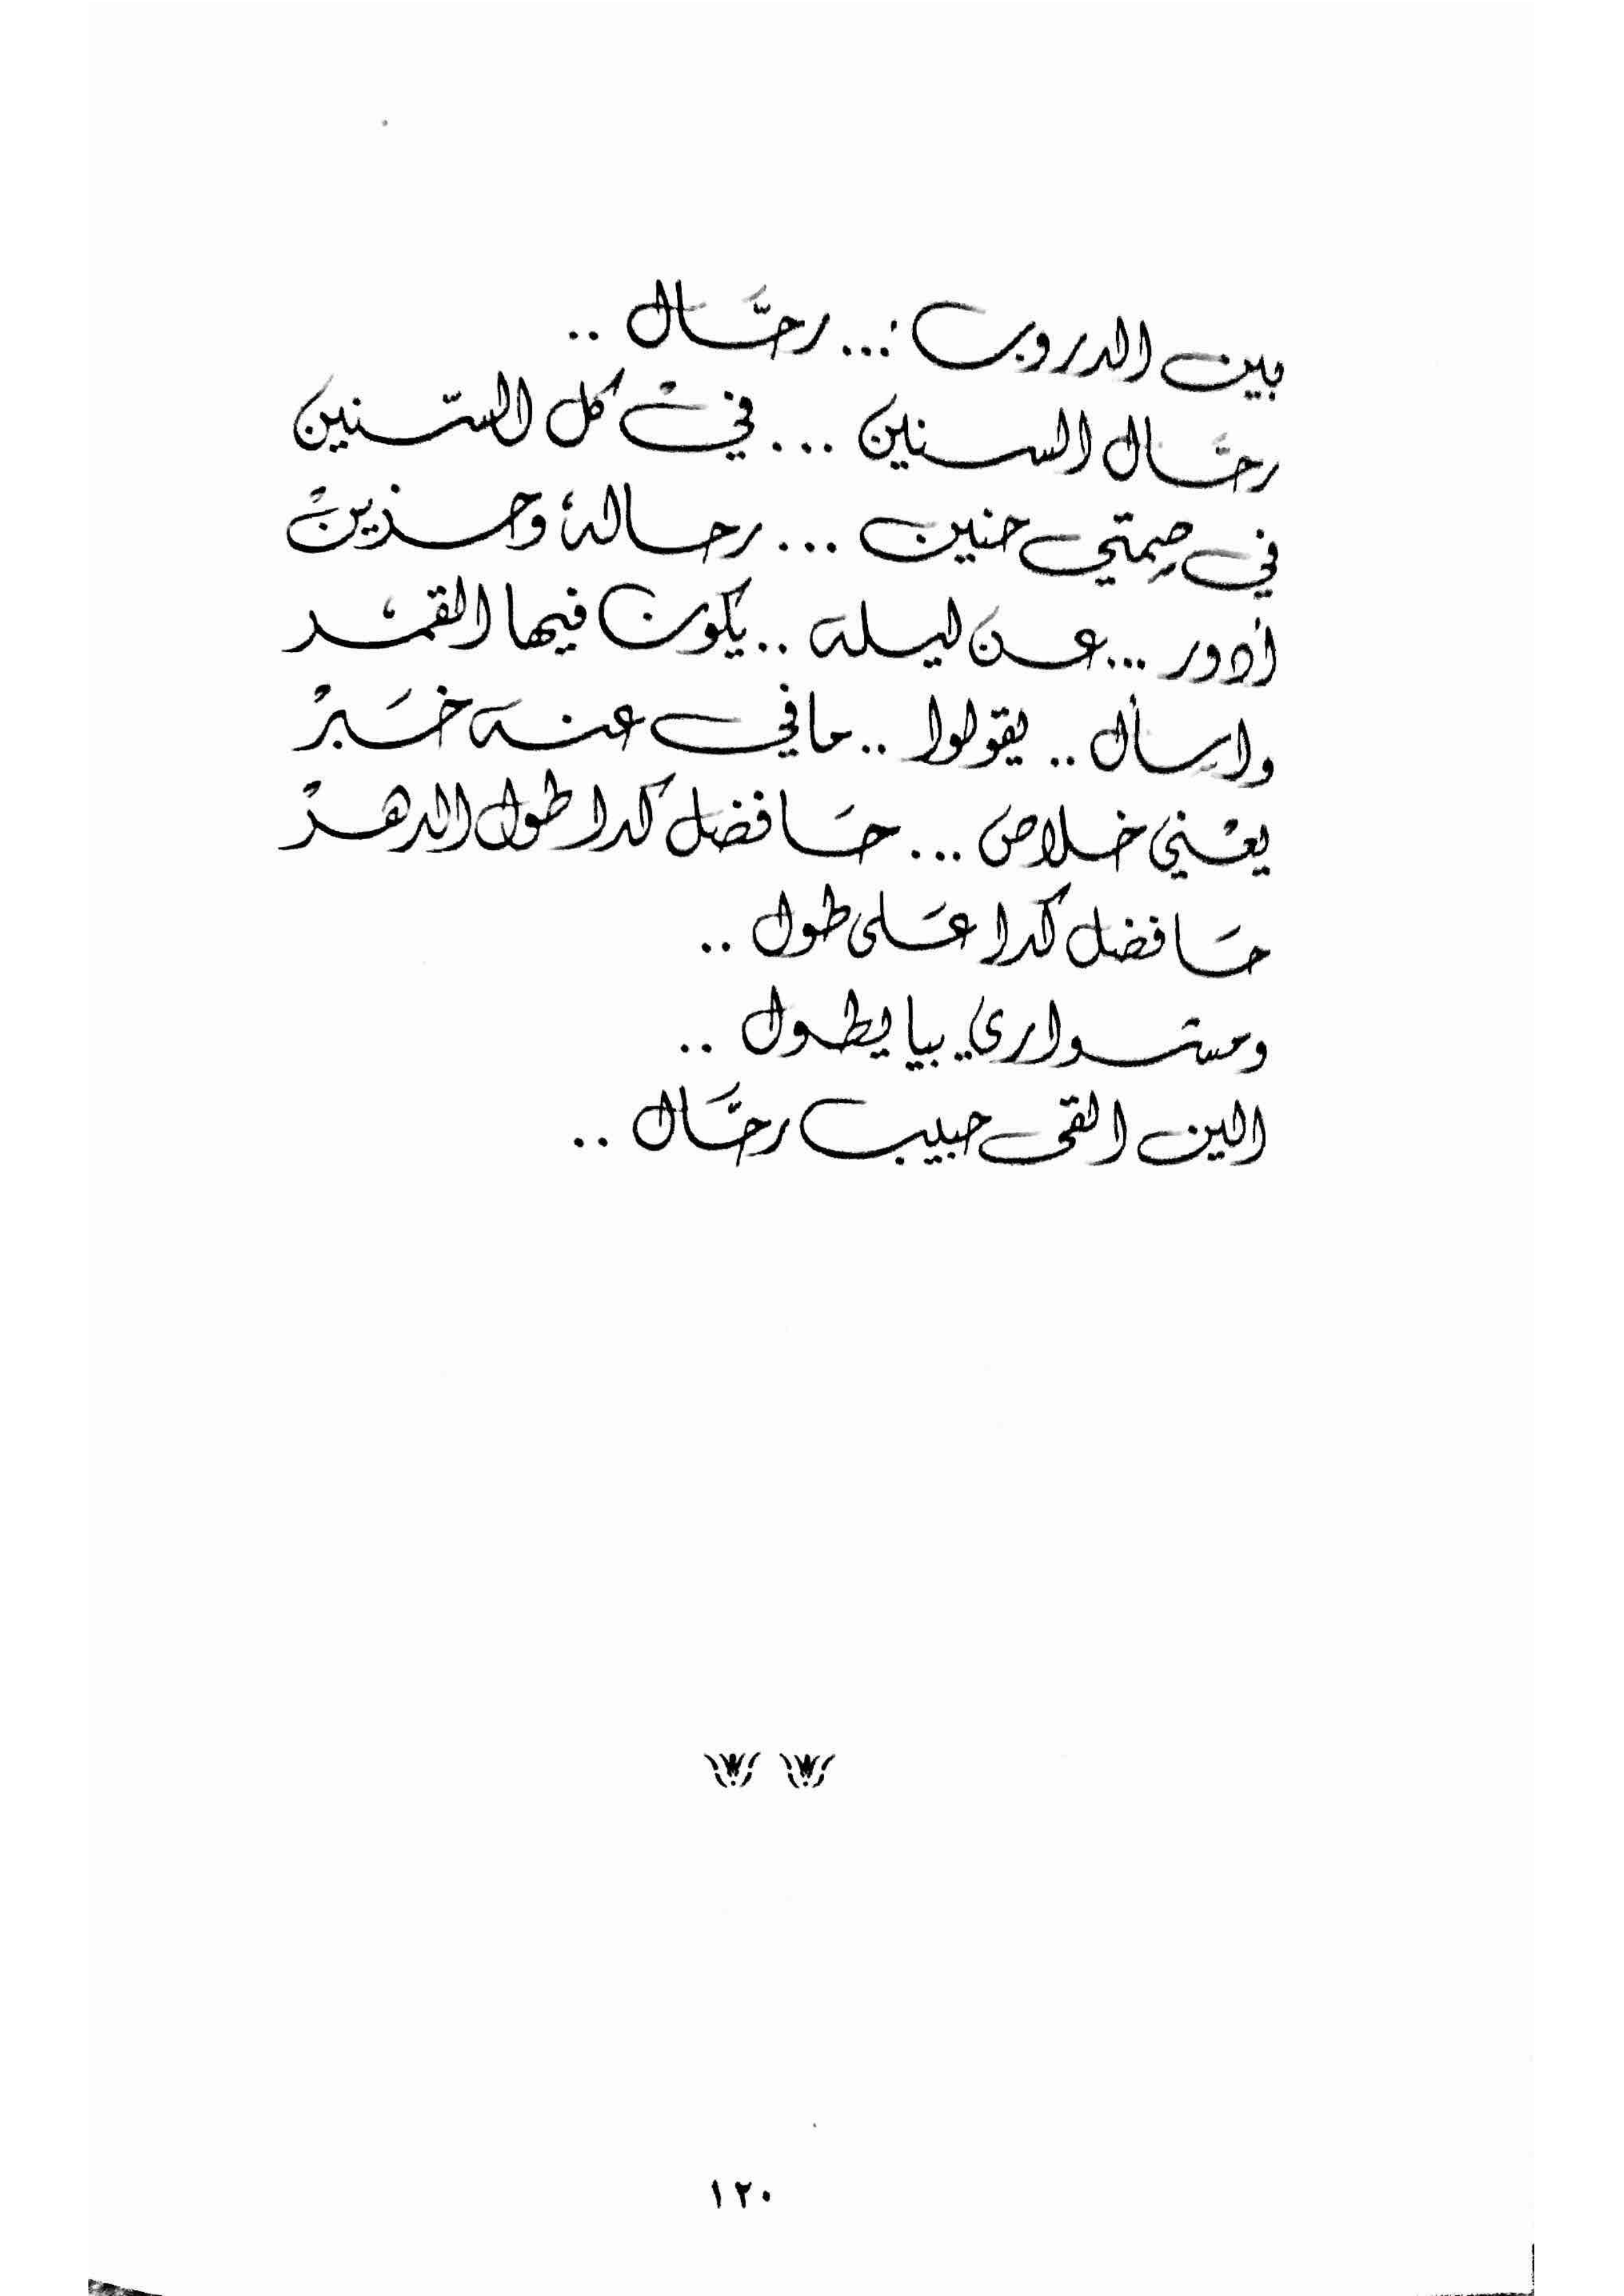 بين الدروب ... رحَّال ..
رحَّال السنين ... فيْ كل السّنين
في صِمتي حنين ... رحالهْ وحزينْ
أدور ... عن ليله .. يكون فيها القمْر
واسأل .. يقولوا .. مافي عنه خَبرْ
يعْني خلاص ... حَا فضل كدا طول الدهرْ
حَا فضل كدا عَلى طول ..
ومشواري بيا يطول ..
الين القى حبيب رحَّال ..
١٢٠